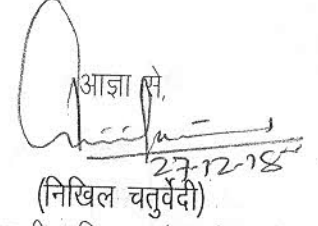 आज्ञा से,
27-12-18
(निखिल चतुर्वेदी)